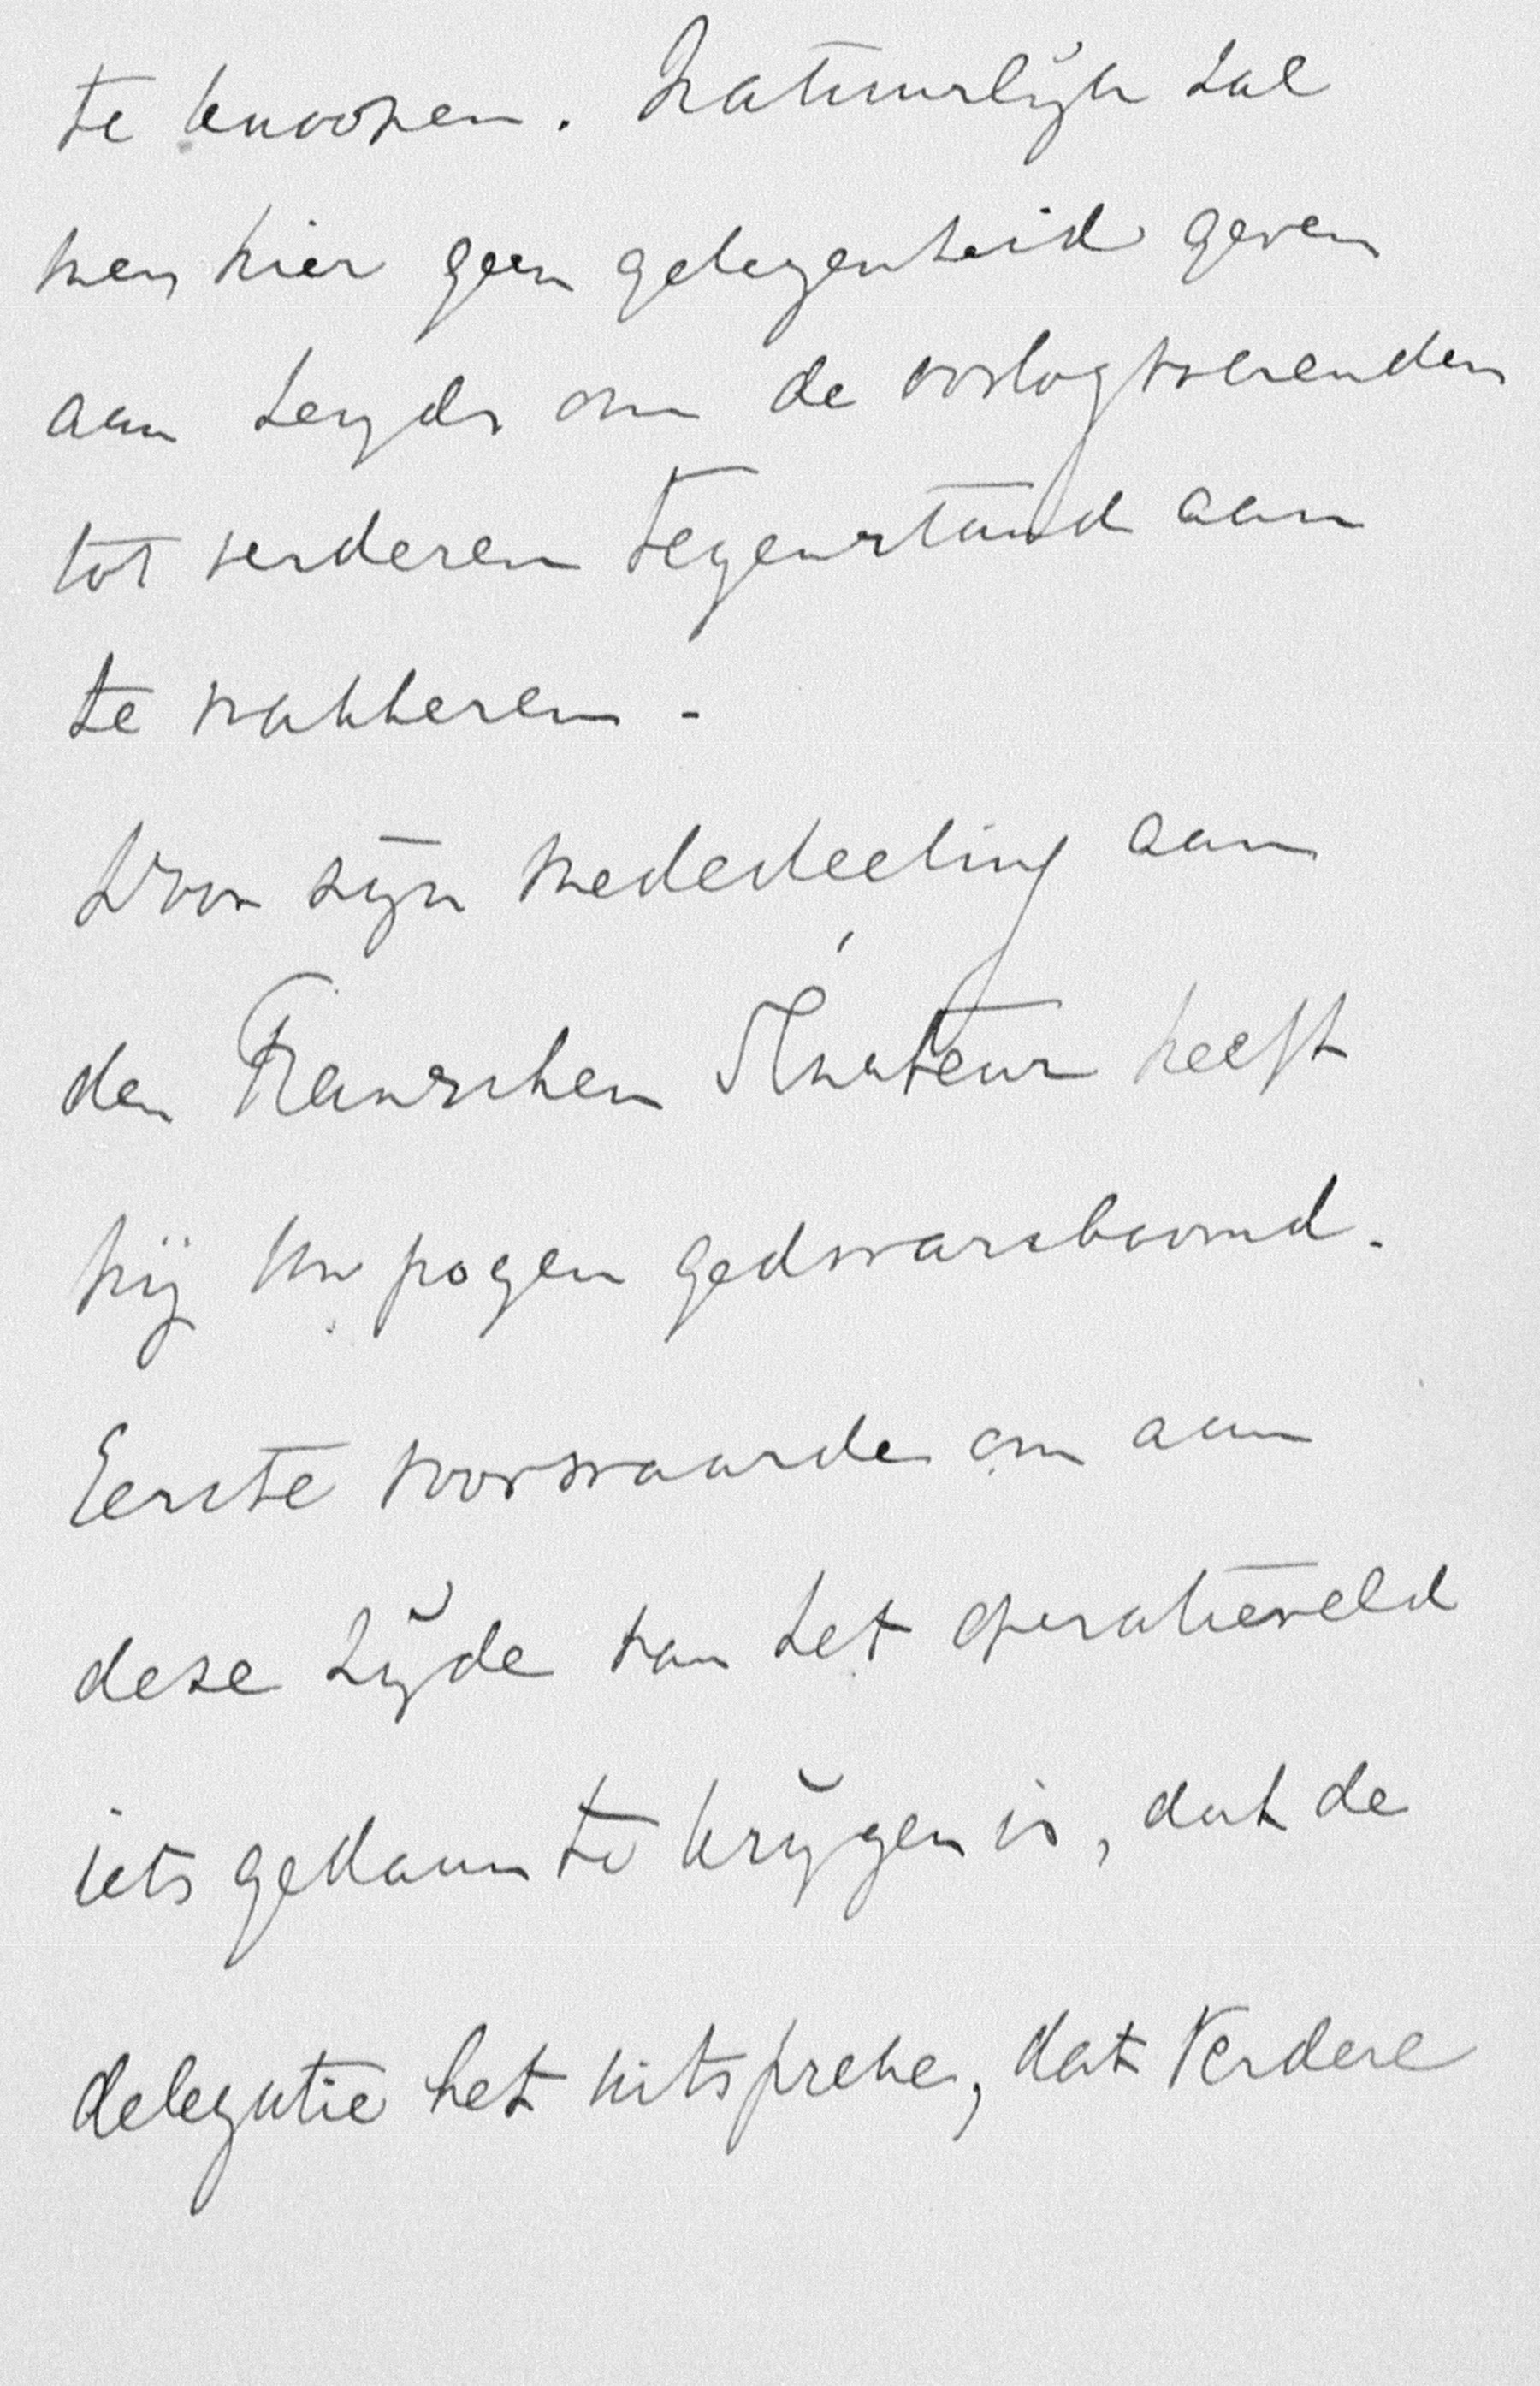 te knoopen. Natuurlijk zal
men hier geen gelegenheid geven
aan Leyds om de oorlogvoerenden
tot verderen tegenstand aan
te wakkeren -
Door zijn mededeeling aan
den Franschen Sénateur heeft
hij Uw pogen gedwarsboomd.
Eerste voorwaarde om aan
deze zijde van het operatieveld
iets gedaan te krijgen is, dat de
delegatie het uitspreke, dat verdere